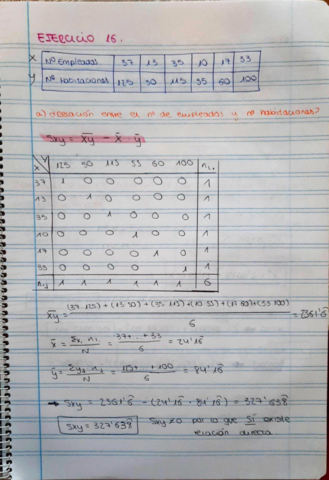 EJERCICIO 16.
X Nº Empleados 37 15 35 10 17 33
Y Nº Habitaciones 125 50 115 55 60 100
a) ¿Relación entre el nº de empleados y nº habitaciones?
Sxy = x̄ȳ - x̄ · ȳ
x Y 125 50 115 55 60 100 ni.
37 1 0 0 0 0 0 1
15 0 1 0 0 0 0 1
35 0 0 1 0 0 0 1
10 0 0 0 1 0 0 1
17 0 0 0 0 1 0 1
33 0 0 0 0 0 1 1
n.j 1 1 1 1 1 1 6
x̄ȳ = (37·125)+(15·50)+(35·115)+(10·55)+(17·60)+(33·100) / 6 = 2361'6
x̄ = Σxi · ni / N = 37+...+33 / 6 = 24'16
ȳ = Σyj · nj / N = +...+100 / 6 = 84'16
→ Sxy = 2361'6 - (24'16 · 84'16) = 327'638
Sxy = 327'638 Sxy≠0 por lo que SÍ existe
relación directa